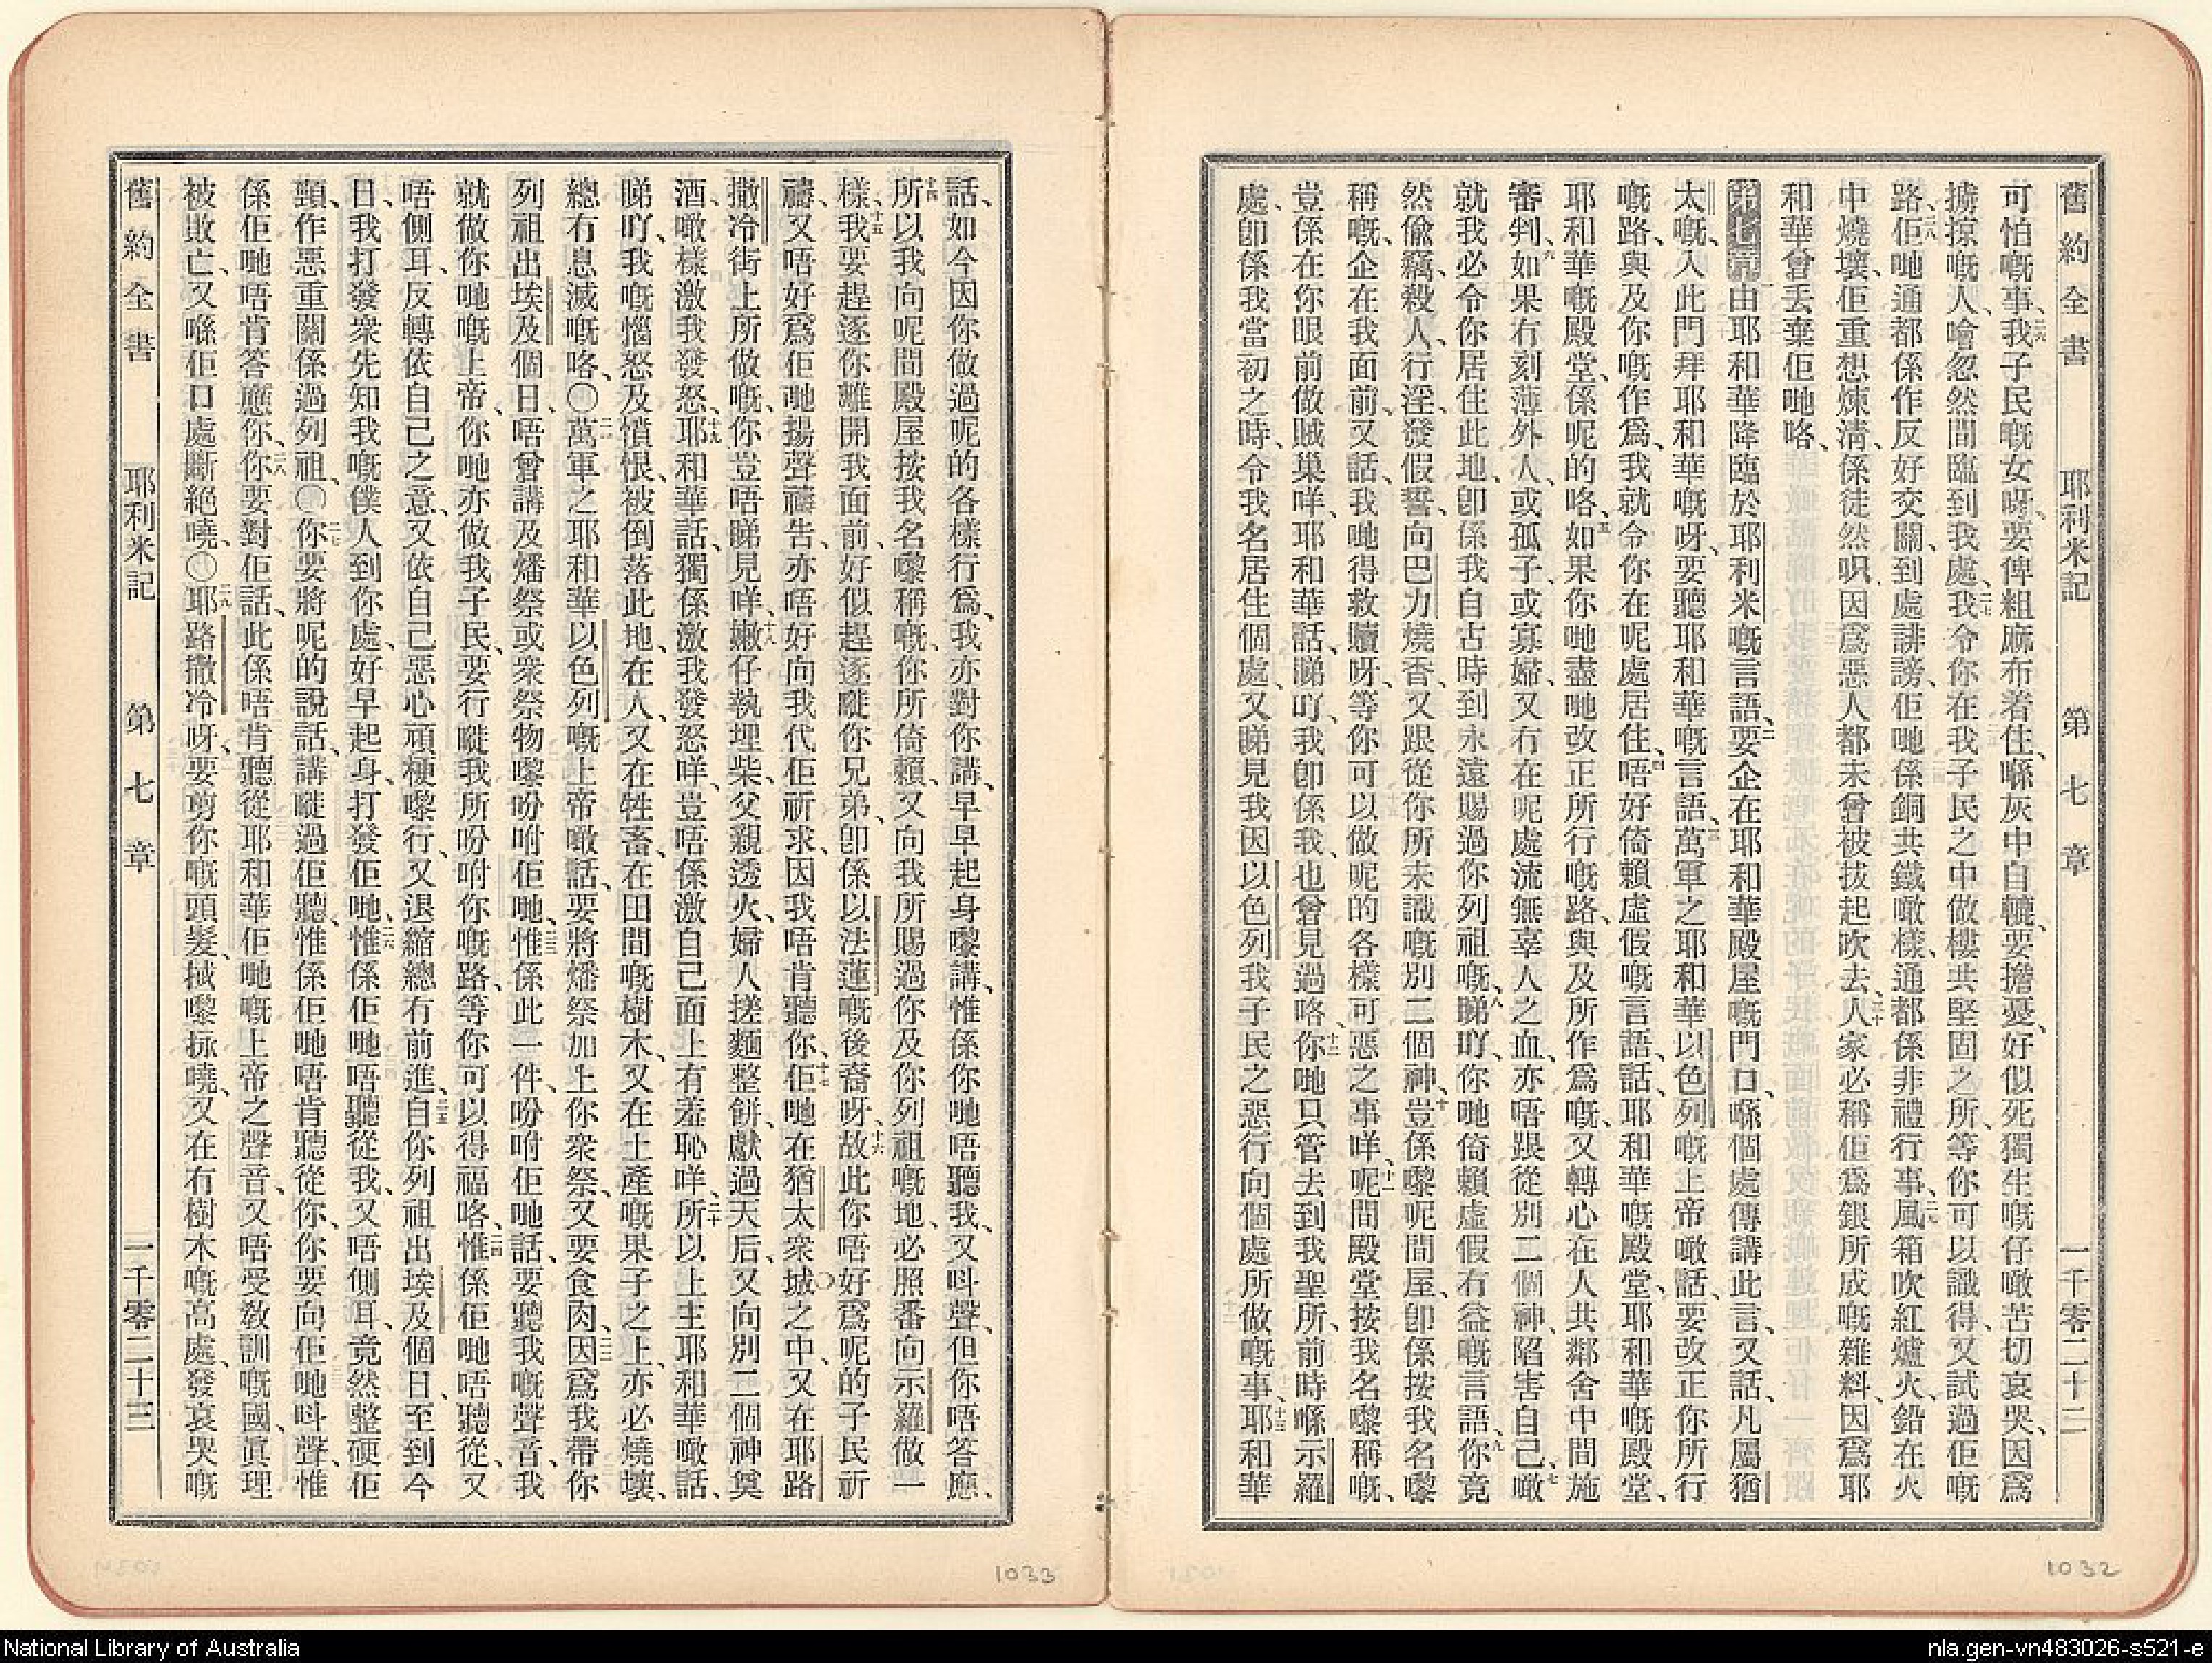 舊約全書 耶利米記 第七章 一千零二十二
可怕嘅事、二六我子民嘅女呀、要俾粗麻布着住、喺灰中自轆、要擔憂、好似死獨生嘅仔噉苦切哀哭、因爲
擄掠嘅人、噲忽然間臨到我處、二七我令你在我子民之中做樓共堅固之所、等你可以識得、又試過佢嘅
路、二八佢哋通都係作反好交關、到處誹謗、佢哋係銅共鐵噉樣、通都係非禮行事、二九風箱吹紅爐火、鉛在火
中燒壞、佢重想煉淸、係徒然唄、因爲惡人都未曾被拔起吹去、三十人家必稱佢爲銀所成嘅雜料、因爲耶
和華曾丟棄佢哋咯、
第七章 一由耶和華降臨於耶利米嘅言語、二要企在耶和華殿屋嘅門口、喺個處傳講此言、又話、凡屬猶
太嘅、入此門拜耶和華嘅呀、要聽耶和華嘅言語、三萬軍之耶和華以色列嘅上帝噉話、要改正你所行
嘅路、與及你嘅作爲、我就令你在呢處居住、四唔好倚賴虛假嘅言語、話、耶和華嘅殿堂、耶和華嘅殿堂、
耶和華嘅殿堂、係呢的咯、五如果你哋盡哋改正所行嘅路、與及所作爲嘅、又轉心在人共鄰舍中間施
審判、六如果冇刻薄外人、或孤子、或寡婦、又冇在呢處流無辜人之血、亦唔跟從別二個神、陷害自己、七噉
就我必令你居住此地、卽係我自古時到永遠賜過你列祖嘅、八睇吖、你哋倚賴虛假冇益嘅言語、九你竟
然偸竊、殺人、行淫、發假誓、向巴力燒香、又跟從你所未識嘅別二個神、十豈係嚟呢間屋、卽係按我名嚟
稱嘅、企在我面前、又話、我哋得救贖呀、等你可以做呢的各樣可惡之事咩、十一呢間殿堂按我名嚟稱嘅、
豈係在你眼前做賊巢咩、耶和華話、睇吖、我卽係我、也曾見過咯、十二你哋只管去到我聖所、前時喺示羅
處、卽係我當初之時、令我名居住個處、又睇見我因以色列我子民之惡行向個處所做嘅事、十三耶和華
舊約全書 耶利米記 第七章 一千零二十三
話、如今因你做過呢的各樣行爲、我亦對你講、早早起身嚟講、惟係你哋唔聽我、又呌聲、但你唔答應、
十四所以我向呢間殿屋按我名嚟稱嘅、你所倚賴、又向我所賜過你及你列祖嘅地、必照番向示羅做一
樣、十五我要趕逐你離開我面前、好似趕逐嘥你兄弟、卽係以法蓮嘅後裔呀、十六故此你唔好爲呢的子民祈
禱、又唔好爲佢哋揚聲禱告、亦唔好向我代佢祈求、因我唔肯聽你、十七佢哋在猶太衆城之中、又在耶路
撒冷街上所做嘅、你豈唔睇見咩、十八嫩仔執埋柴、父親透火、婦人搓麵整餅、獻過天后、又向別二個神奠
酒、噉樣激我發怒、十九耶和華話、獨係激我發怒咩、豈唔係激自己面上有羞恥咩、二十所以上主耶和華噉話、
睇吖、我嘅惱怒及憤恨、被倒落此地、在人、又在牲畜、在田間嘅樹木、又在土產嘅果子之上、亦必燒壞、
總冇息滅嘅咯、〇二一萬軍之耶和華以色列嘅上帝噉話、要將燔祭加上你衆祭、又要食肉、二二因爲我帶你
列祖出埃及個日、唔曾講及燔祭或衆祭物嚟吩咐佢哋、二三惟係此一件、吩咐佢哋話、要聽我嘅聲音、我
就做你哋嘅上帝、你哋亦做我子民、要行嘥我所吩咐你嘅路、等你可以得福咯、二四惟係佢哋唔聽從、又
唔側耳、反轉依自己之意、又依自己惡心頑梗嚟行、又退縮總冇前進、二五自你列祖出埃及個日、至到今
日、我打發衆先知我嘅僕人到你處、好早起身、打發佢哋、二六惟係佢哋唔聽從我、又唔側耳、竟然整硬佢
頸、作惡重關係過列祖、〇二七你要將呢的說話、講嘥過佢聽、惟係佢哋唔肯聽從你、你要向佢哋呌聲、惟
係佢哋唔肯答應你、二八你要對佢話、此係唔肯聽從耶和華佢哋嘅上帝之聲音、又唔受敎訓嘅國、眞理
被敗亡、又喺佢口處斷絕曉、〇二九耶路撒冷呀、要剪你嘅頭髮、掝嚟捸曉、又在冇樹木嘅高處、發哀哭嘅
1033
1032
National Library of Australia
nla.gen-vn483026-s521-e